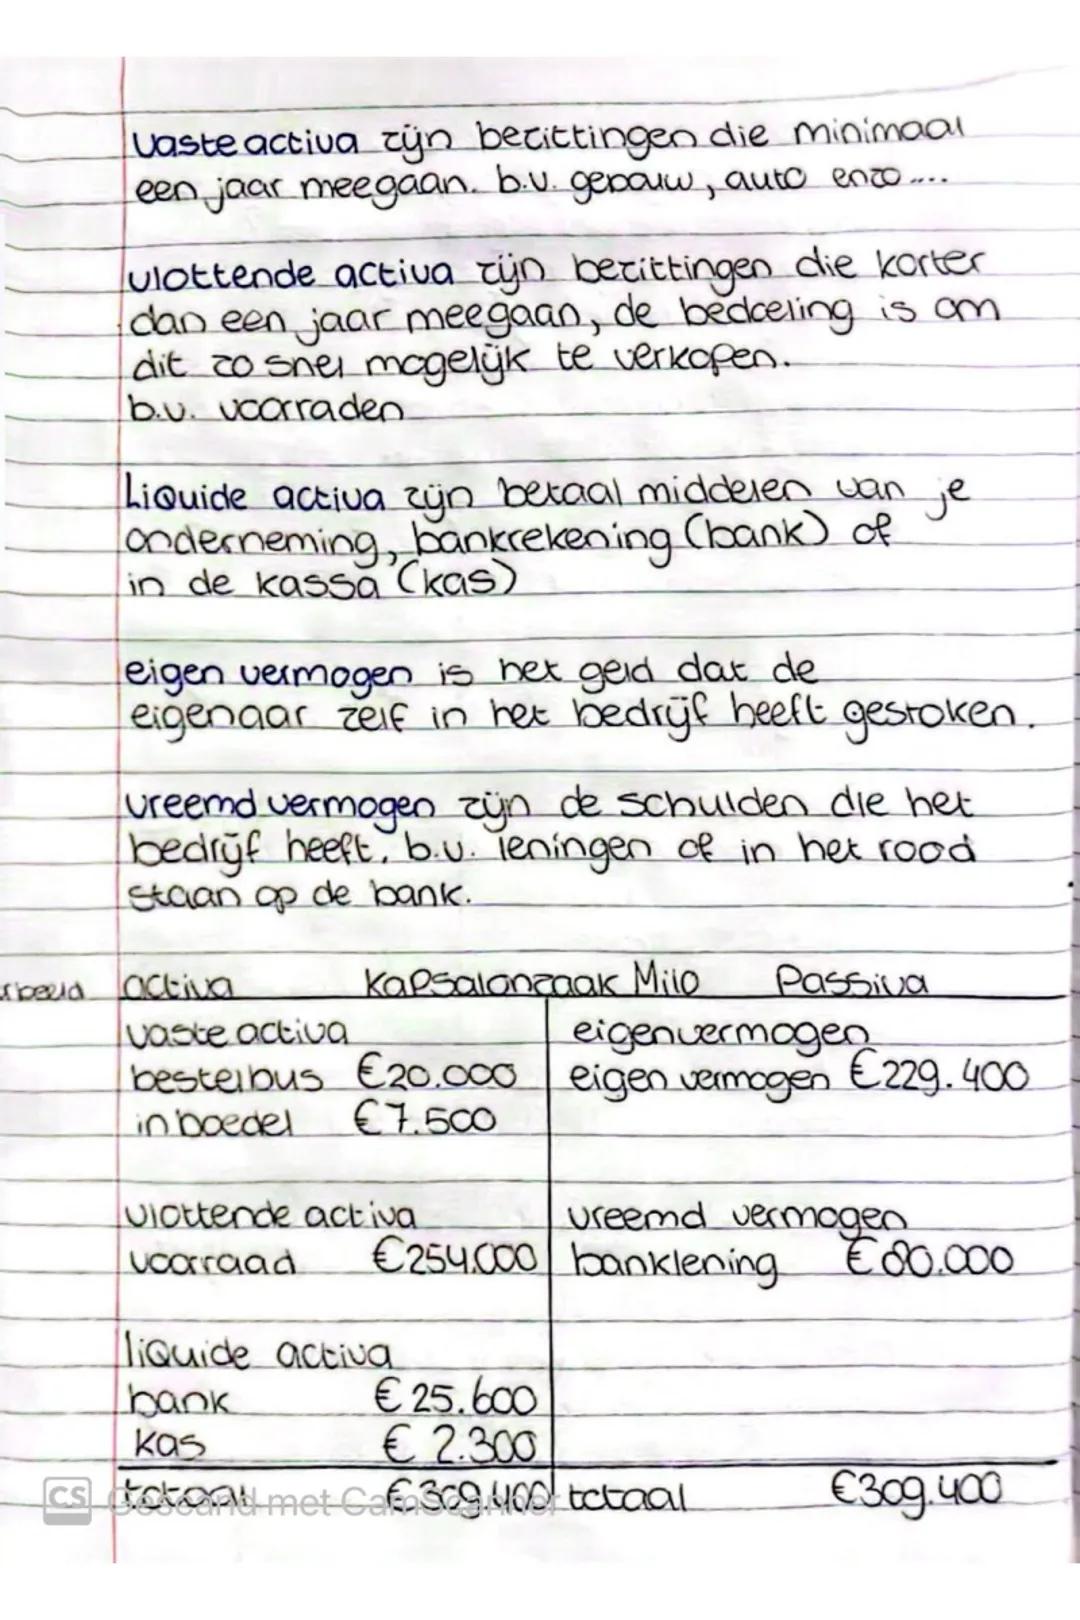 vaste activa zijn bezittingen die minimaal
een jaar meegaan. b.v. gebouw, auto enzo....
vlottende activa zijn bezittingen die korter
dan een jaar meegaan, de bedoeling is om
dit zo snel mogelijk te verkopen.
b.v. voorraden
Liquide activa zijn betaal middelen van je
onderneming, bankrekening (bank) of
in de kassa (kas)
eigen vermogen is het geld dat de
eigenaar zelf in het bedrijf heeft gestoken.
vreemd vermogen zijn de schulden die het
bedrijf heeft. b.v. leningen of in het rood
staan op de bank.
activa Kapsalonzaak Milo Passiva
vaste activa eigenvermogen
bestelbus €20.000 eigen vermogen €229.400
inboedel €7.500
vlottende activa vreemd vermogen
voorraad €254.000 banklening €80.000
liquide activa
bank €25.600
kas €2.300
totaal €309.400 totaal €309.400
CS Gescand met CamScanner